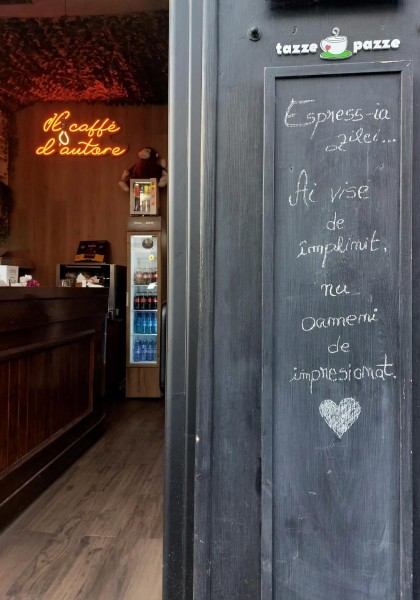 Il caffé
d'autore
tazze pazze
Espress-ia
zilei...
Ai vise
de
împlinit,
nu
oameni
de
impresionat.